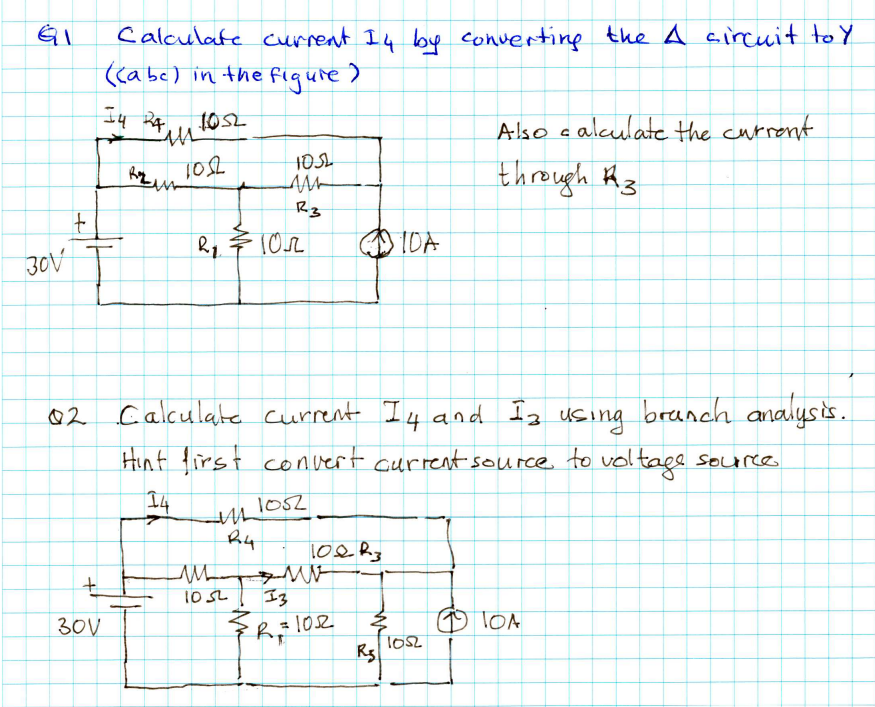 Q1 Calculate current I4 by converting the Δ circuit to Y
((abc) in the figure)
I4 R4 10Ω
Also calculate the current
through R3
R2 10Ω 10Ω
R3
+
30V
R1 10Ω
10A
Q2 Calculate current I4 and I3 using branch analysis.
Hint first convert current source to voltage source
I4 10Ω
R4
10Ω R3
+
10Ω I3
30V
R1=10Ω
R5 10Ω
10A